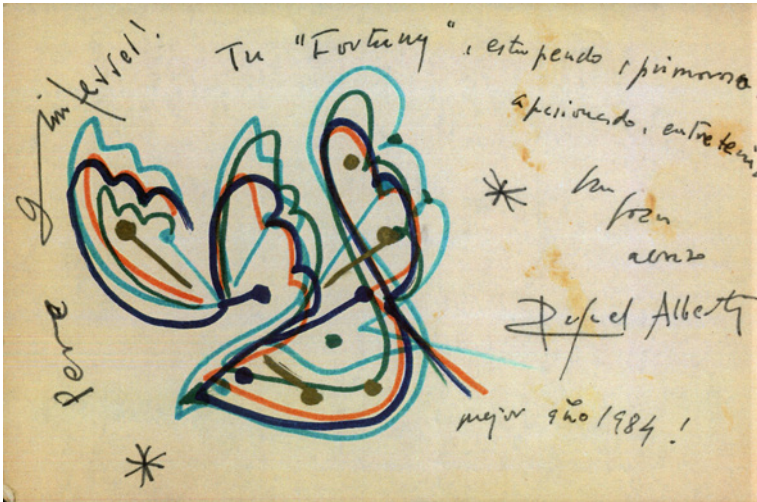 Pere Gimferrer!
Tu "Fortuny", estupendo, primoroso
apasionado, entretenido
Un
gran
abrazo
Rafael Alberti
mejor año 1984!